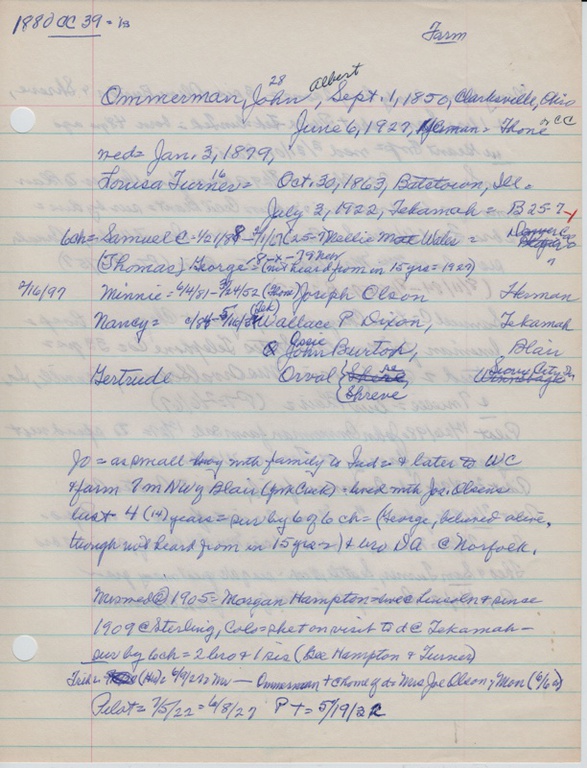 1880 CC 39 = 13
Farm
Ommerman, John 28 Albert, Sept. 1, 1850, Clarksville, Ohio
June 6, 1927, Herman = Ihone or CC
wed = Jan. 3, 1879,
Louisa Turner 16 = Oct. 30, 1863, Batstown, Ill.
July 2, 1922, Tekamah = B 25-7
6ch = Samuel C - (25-7 Nellie Wales =
(Thomas) George = (not heard from in 15 yrs = 1927)
2/16/97 Minnie = 6/4/81 - (Ihone) Joseph Olson Herman
Nancy = Wallace P Dixon, Tekamah
& Ossie John Burton, Blair
Gertrude Orval Sioux City, Ia
Shreve
Jo = as small boy with family to Ind = & later to WC
& farm 7 m NW of Blair - lived with Jos. Olsens
last 4 (14) years = sur by 6 of 6 ch = (George, believed alive,
though not heard from in 15 years) & bro DA @ Norfolk.
1905 = Morgan Hampton = Lincoln & since
1909 @ Sterling, Colo = she on visit to d @ Tekamah -
sur by 6 ch = 2 bro & 1 sis (See Hampton & Turner)
Ommerman + @ home of d = Mrs Joe Olson, Mon (6/6 =)
Pilot = 7/5/22 = 6/8/27 PT = 5/19/22